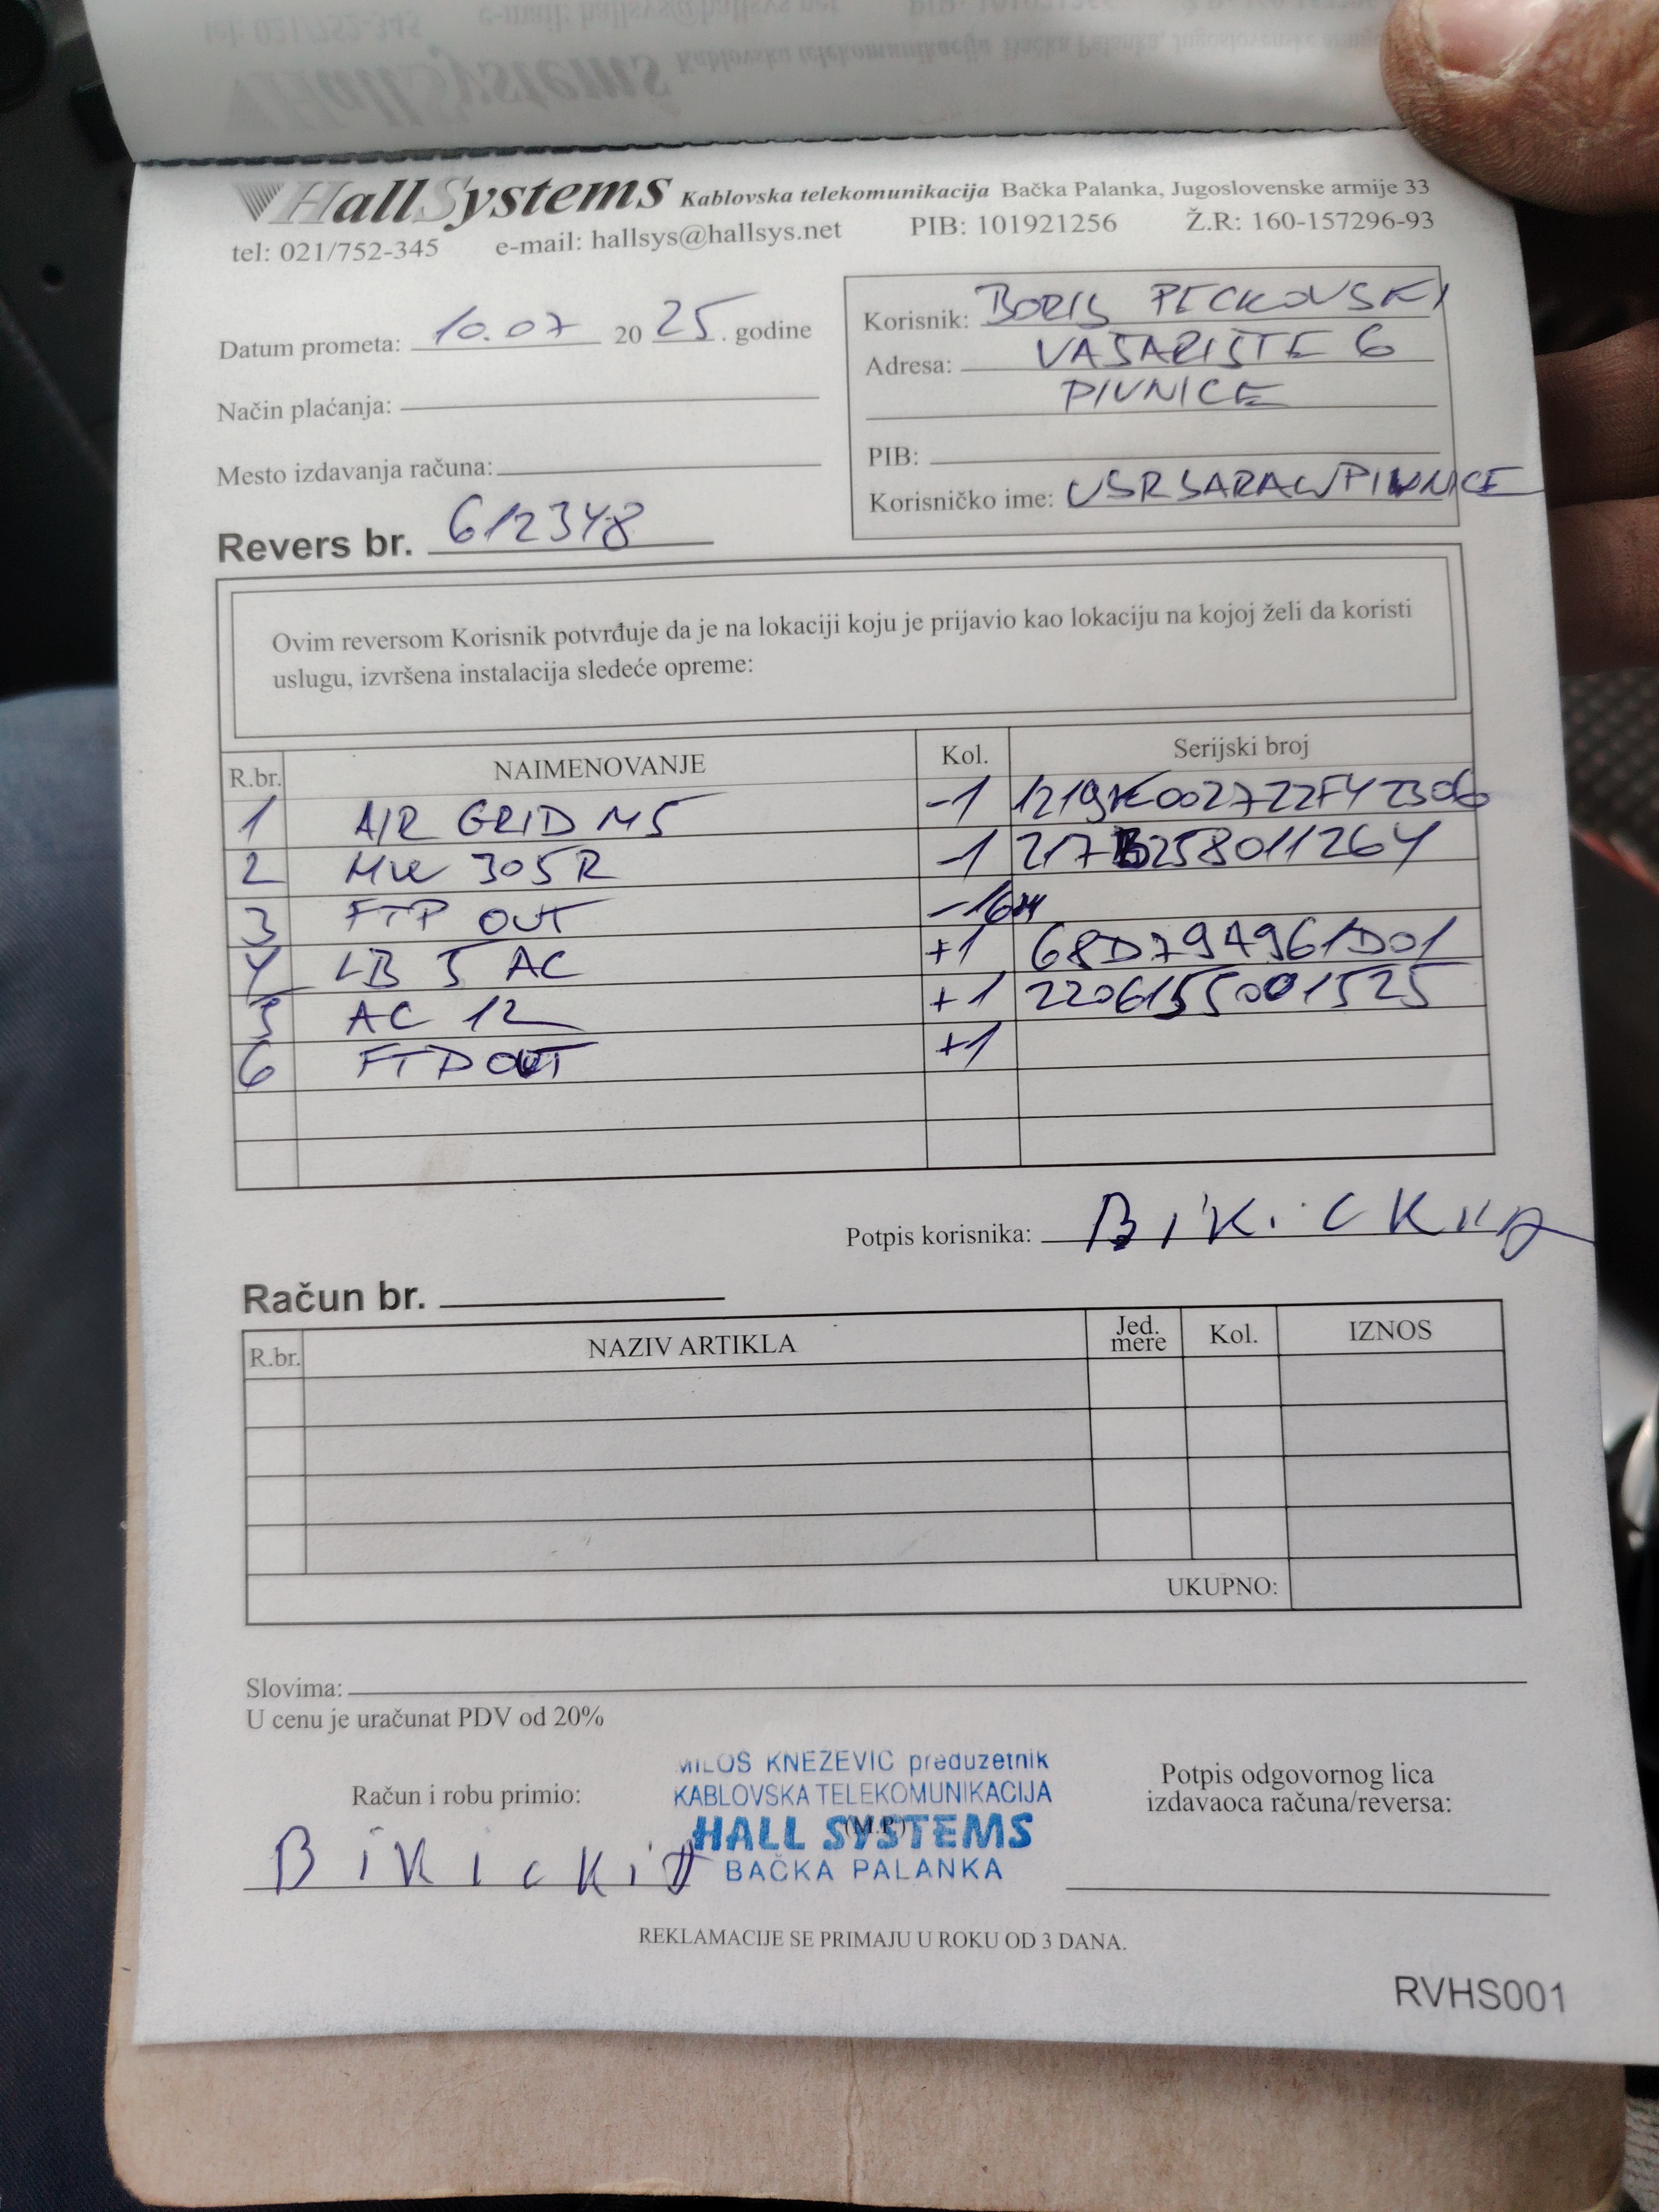 HallSystems Kablovska telekomunikacija Bačka Palanka, Jugoslovenske armije 33
tel: 021/752-345 e-mail: hallsys@hallsys.net PIB: 101921256 Ž.R: 160-157296-93
Datum prometa: 10.07 2025. godine
Način plaćanja:
Mesto izdavanja računa:
Revers br. 612348
Korisnik: BORIS PECKOVSKI
Adresa: VASARISTE 6
PIVNICE
PIB:
Korisničko ime: USRSARAWPIVNICE
Ovim reversom Korisnik potvrđuje da je na lokaciji koju je prijavio kao lokaciju na kojoj želi da koristi
uslugu, izvršena instalacija sledeće opreme:
R.br. NAIMENOVANJE Kol. Serijski broj
1 AIR GRID M5 -1 1219K002722F42306
2 MW 305R -1 217B258011264
3 FTP OUT -16m
4 LB 5 AC +1 68D79A961D01
5 AC 12 +1 2206155001525
6 FTP OUT +1
Potpis korisnika:
Račun br.
R.br. NAZIV ARTIKLA Jed. mere Kol. IZNOS
UKUPNO:
Slovima:
U cenu je uračunat PDV od 20%
Račun i robu primio:
MILOŠ KNEŽEVIĆ preduzetnik
KABLOVSKA TELEKOMUNIKACIJA
(M.P.)
HALL SYSTEMS
BAČKA PALANKA
Potpis odgovornog lica
izdavaoca računa/reversa:
REKLAMACIJE SE PRIMAJU U ROKU OD 3 DANA.
RVHS001